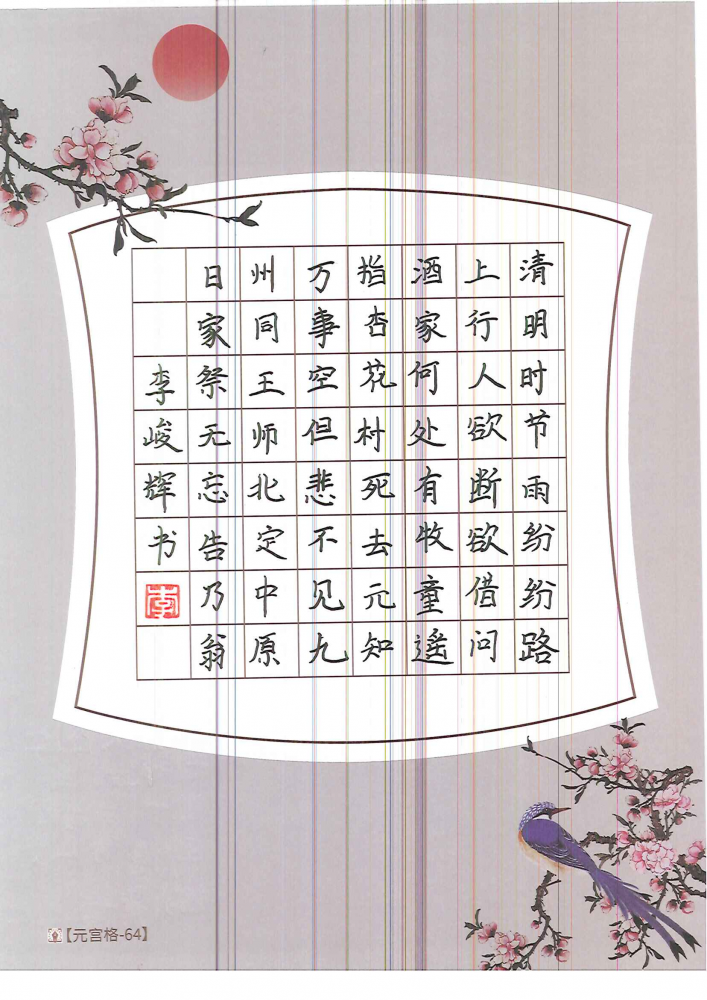 清明时节雨纷纷路
上行人欲断欲借问
酒家何处有牧童遥
指杏花村死去元知
万事空但悲不见九
州同王师北定中原
日家祭无忘告乃翁
李峻辉书
李
【元宫格-64】